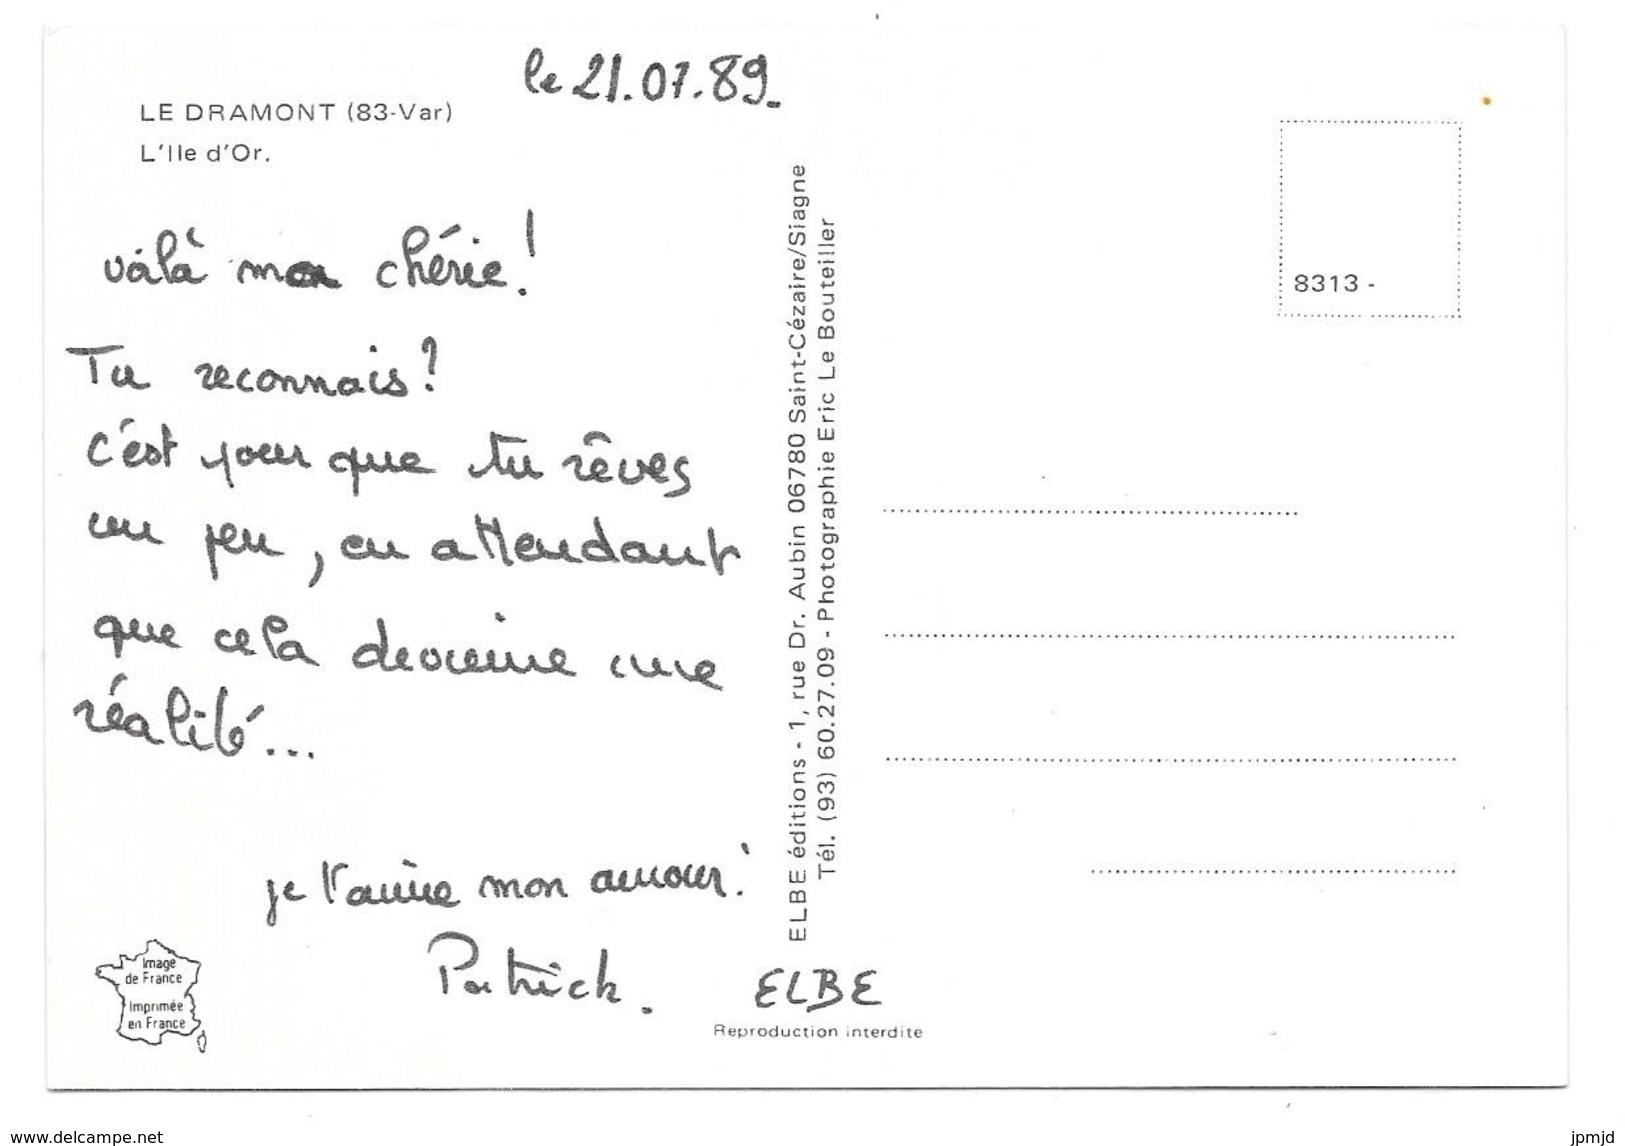 le 21.07.89.
LE DRAMONT (83-Var)
L'Ile d'Or.
voilà mon chérie!
Tu reconnais?
c'est pour que tu rêves
un peu, en attendant
que cela devienne une
réalité...
je t'aime mon amour!
Patrick.
Image
de France
Imprimée
en France
ELBE éditions - 1, rue Dr. Aubin 06780 Saint-Cézaire/Siagne
Tél. (93) 60.27.09 - Photographie Eric Le Bouteiller
ELBE
Reproduction interdite
8313 -
www.delcampe.net
jpmjd